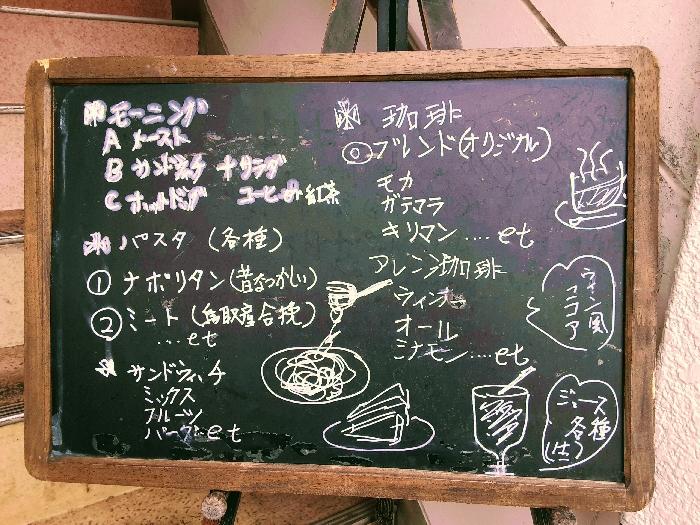 モーニング
A トースト
B サンドウィッチ サラダ
C ホットドッグ コーヒー or 紅茶
パスタ (各種)
① ナポリタン (昔なつかしい)
② ミート (鳥取産合挽)
....et
サンドウィッチ
ミックス
フルーツ
バーグ..et
珈琲
◎ブレンド (オリジナル)
モカ
ガテマラ
キリマン ....et
アレンジ珈琲
ウィンナー
オーレ
シナモン....et
ウィーン風
ココア
ジュース
各種
(生)